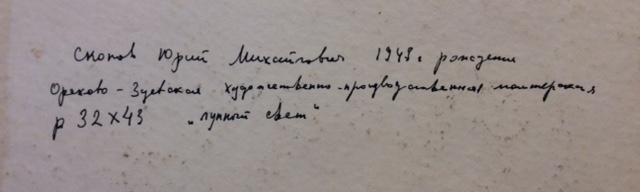 Скопов Юрий Михайлович 1943 г рождения
Орехово-Зуевская художественно-производственная мастерская
р 32х43 "лунный свет"